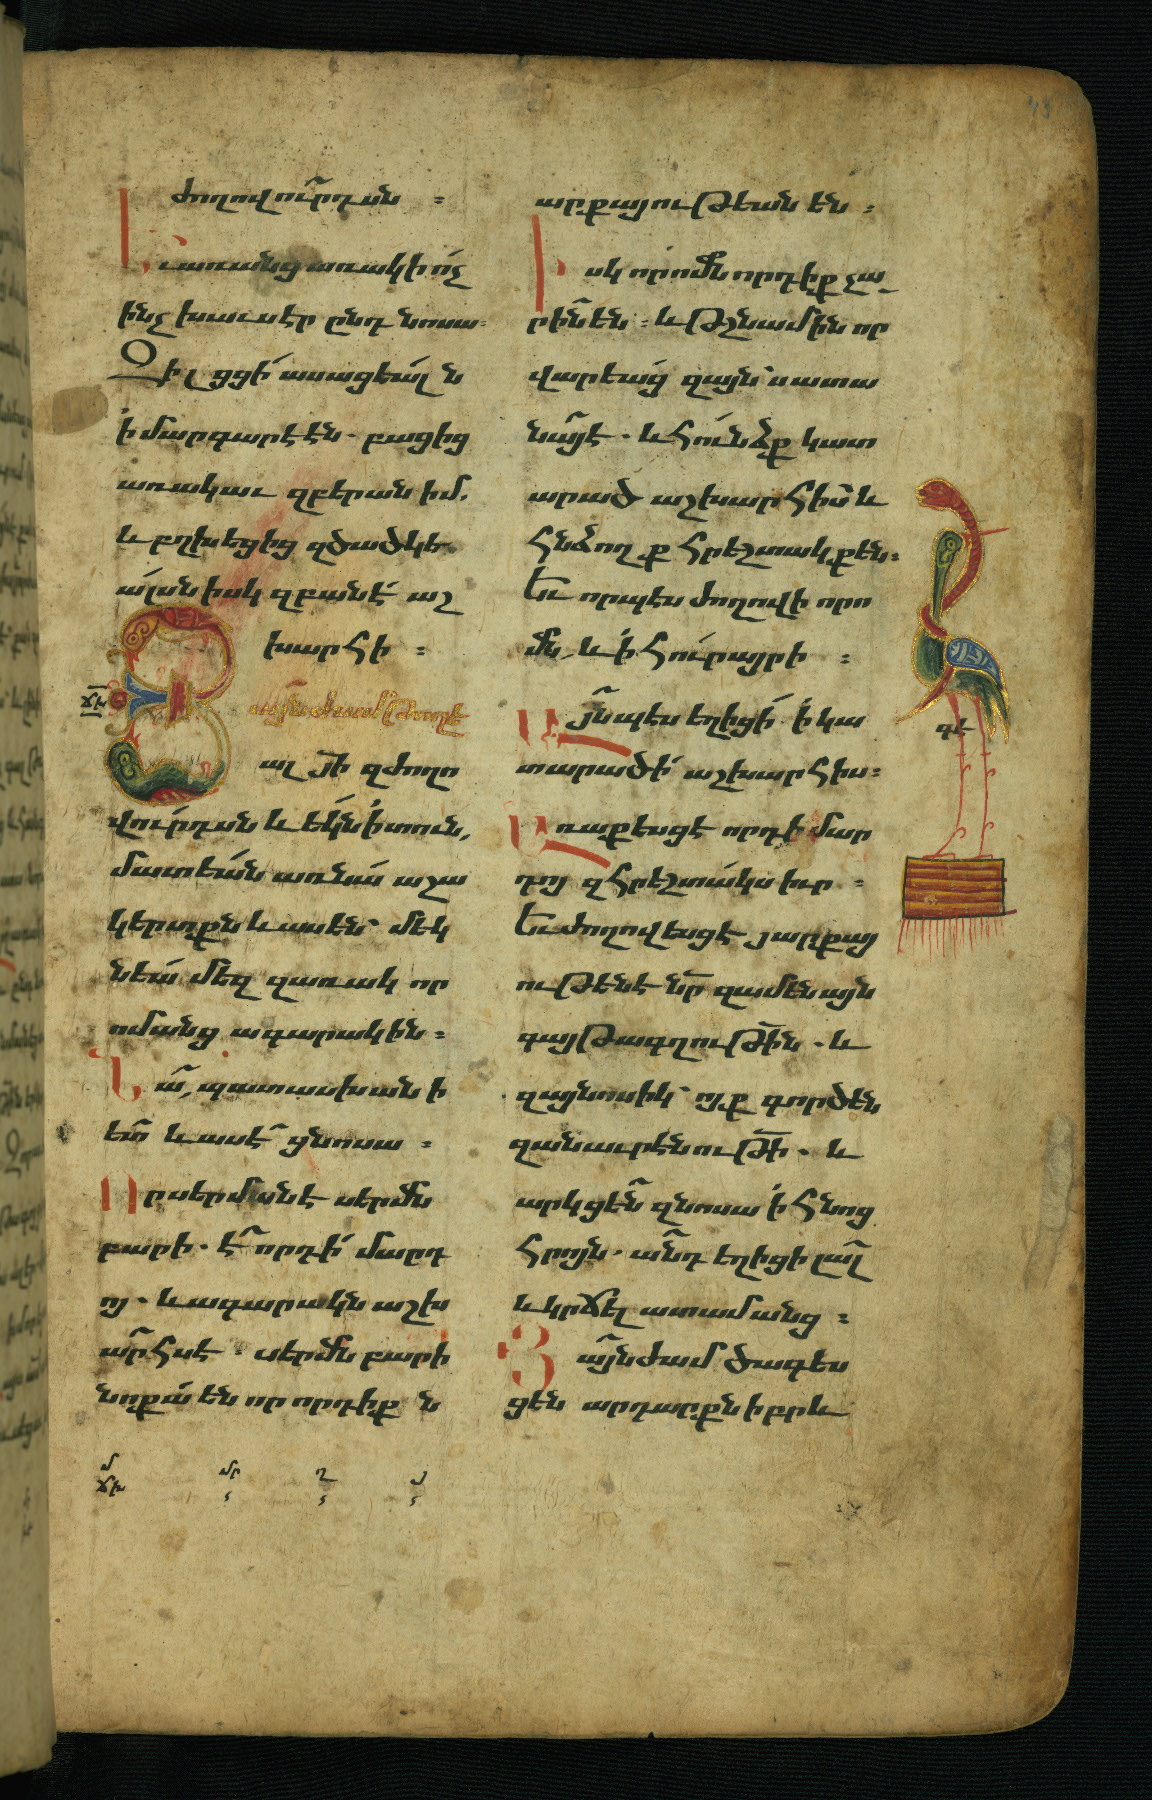 ժողովուրդսն ։
Եւ առանց առակի ոչ
ինչ խաւսէր ընդ նոսա։
Զի լցցի ասացեալն
ի մարգարէէն· բացից
առակաւ զբերան իմ.
և բղխեցից զծածկե
ալսն իսկ զբանէ աշ
խարհի ։
ճխ
Յայնժամ թողե
ալ յի զժողո
վուրդսն և եկն ի տուն,
մատեան առ նա աշա
կերտքն և ասեն՝ մեկ
նեա մեզ զառակ որ
ոմանցն ագարակին ։
Նա պատասխանի
ետ և ասէ ցնոսա ։
Որ սերմանէ սերմն
բարի· է որդի մարդ
ոյ· և ագարակն աշխ
արհս է· սերմն բարի
նոքա են որ որդիքն
արքայութեան են ։
Իսկ որոմն որդիք չա
րին են ։ և թշնամին որ
վարեաց զայն՝ սատա
նայ է· և հունձք կատ
արած աշխարհիս և
հնձողք հրեշտակք են։
Եւ որպէս ժողովի որո
մն, և ի հուր այրի ։
Այնպէս եղիցի ի կա
տարածի աշխարհիս։
Առաքեսցէ որդի մար
դոյ զհրեշտակս իւր ։
Եւ ժողովեսցէ յարքայ
ութենէ նր զամենայն
գայթագղութին· և
զայնոսիկ՝ ոյք գործեն
զանաւրէնութի· և
արկցեն զնոսա ի հնոց
հրոյն· անդ եղիցի լալ
և կրճել ատամանց ։
Յայնժամ ծագես
ցեն արդարքն իբրև
գէ
մ
ճխ
մր
ղ
յ